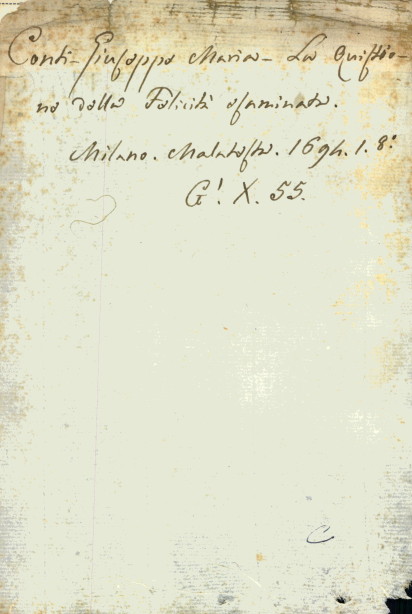 Conti - Giuseppe Maria - La Quistio-
ne della Felicità esaminata.
Milano. Malatesta. 1694. 1. 8.°
G! X. 55.
C